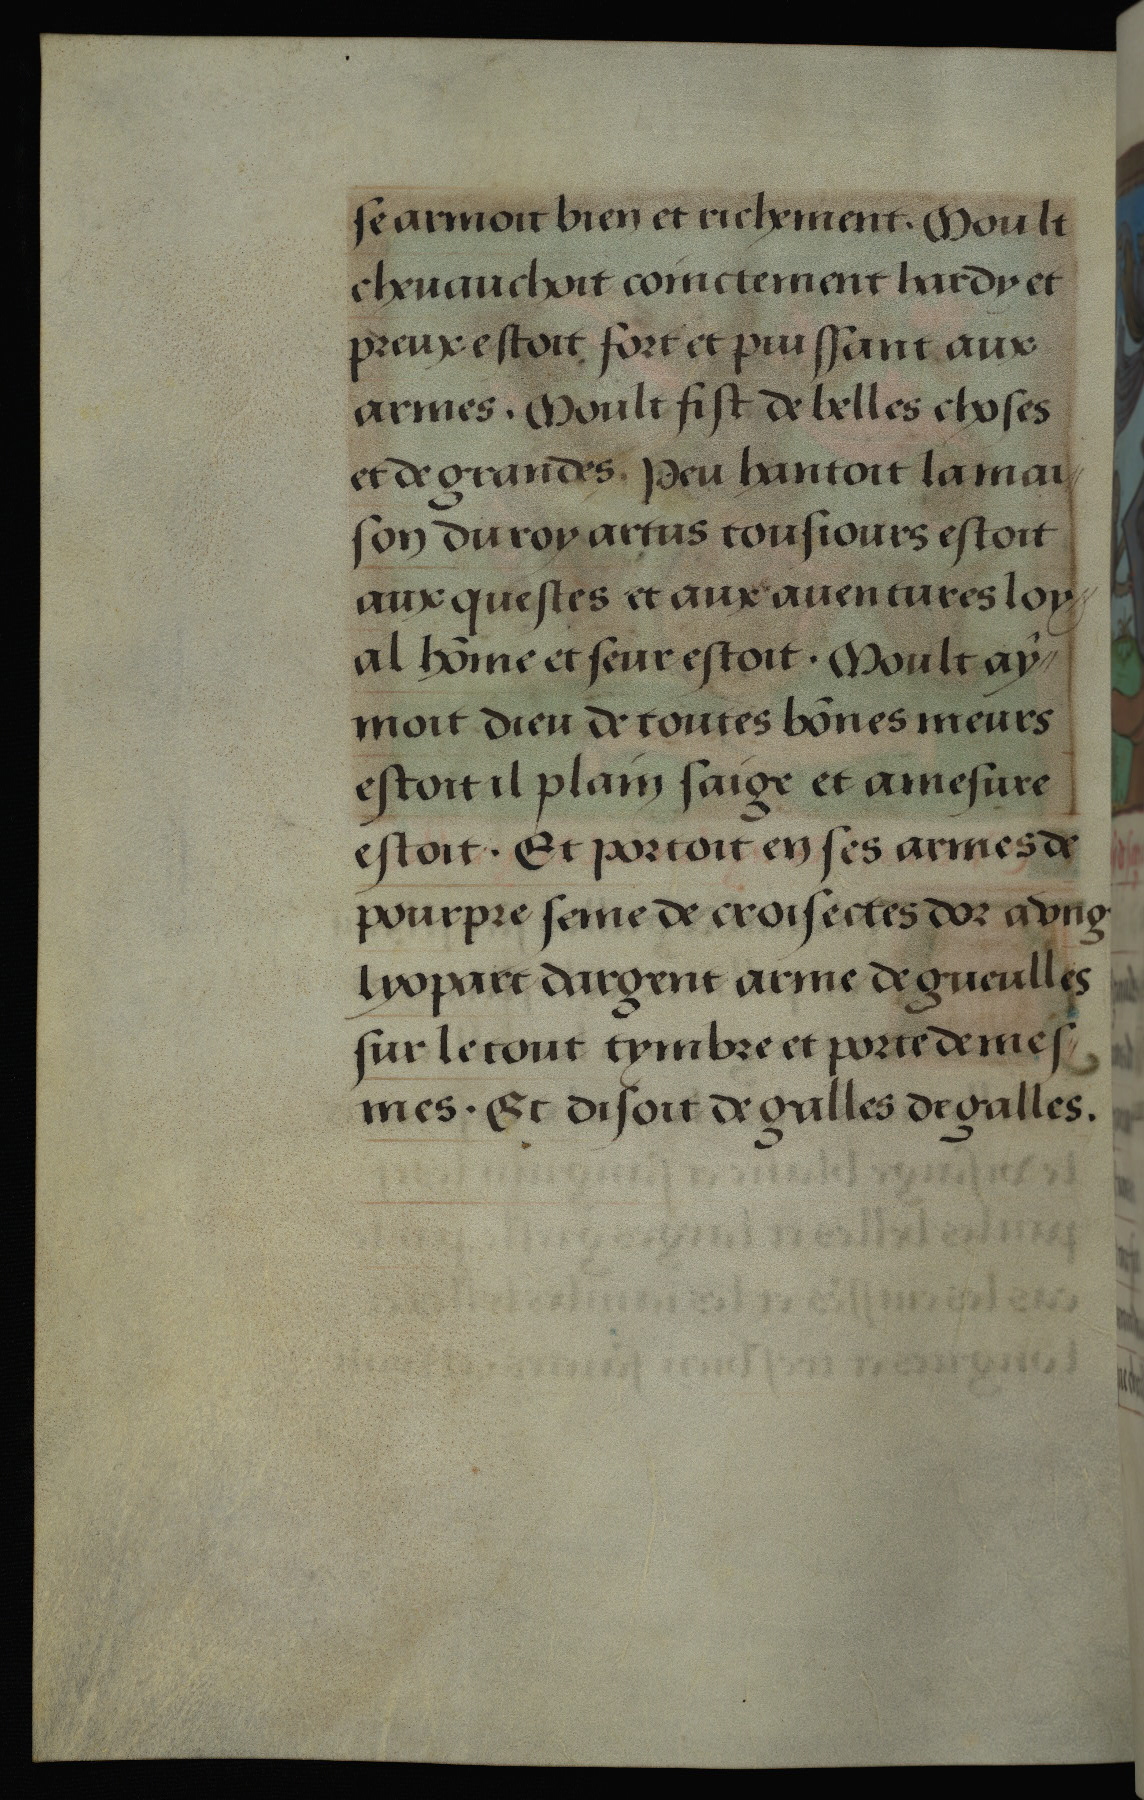 se armoit bien et richement. Moult
cheuauchoit coinctement hardy et
preux estoit fort et puissant aux
armes. Moult fist de belles choses
et de grandes. Peu hantoit la mai//
son du roy artus tousiours estoit
aux questes et aux auentures loy//
al hõme et seur estoit. Moult ay//
moit dieu de toutes bõnes meurs
estoit il plain saige et amesure
estoit. Et portoit en ses armes de
pourpre seme de croisectes dor a vng
lyopart dargent arme de gueulles
sur le tout tymbre et porte de mes//
mes. Et disoit de galles de galles.